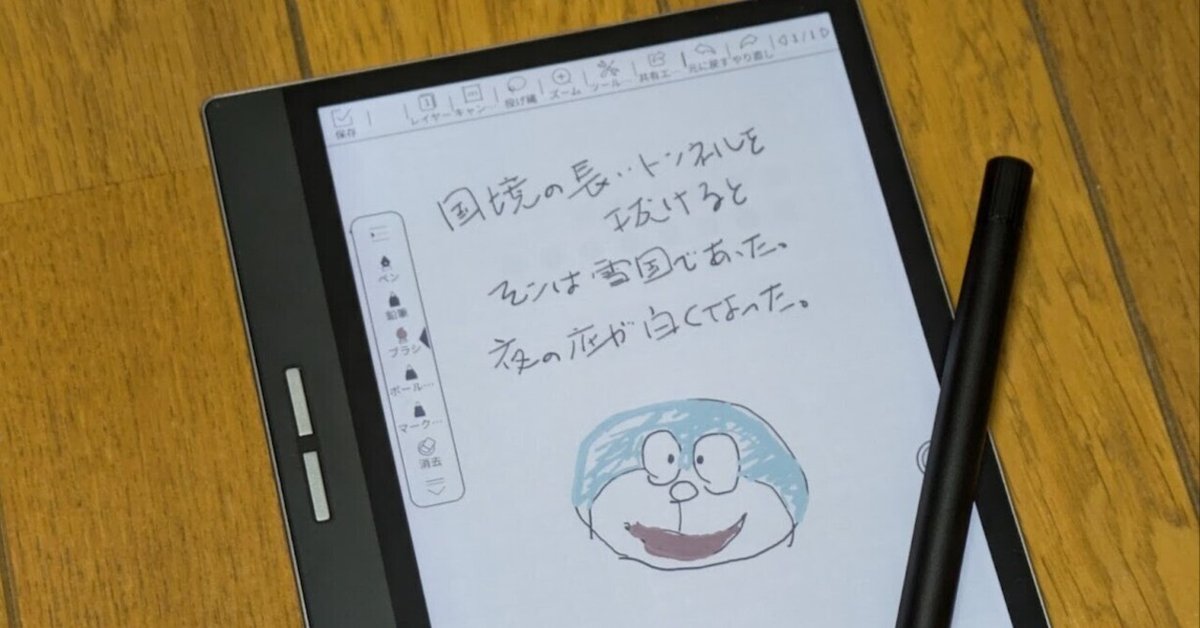 保存 レイヤー キャン… 投げ縄 ズーム ツール… 共有エ… 元に戻す やり直し 1/1
国境の長いトンネルを
抜けると
そこは雪国であった。
夜の底が白くなった。
ペン
鉛筆
ブラシ
ボール…
マーク…
消去